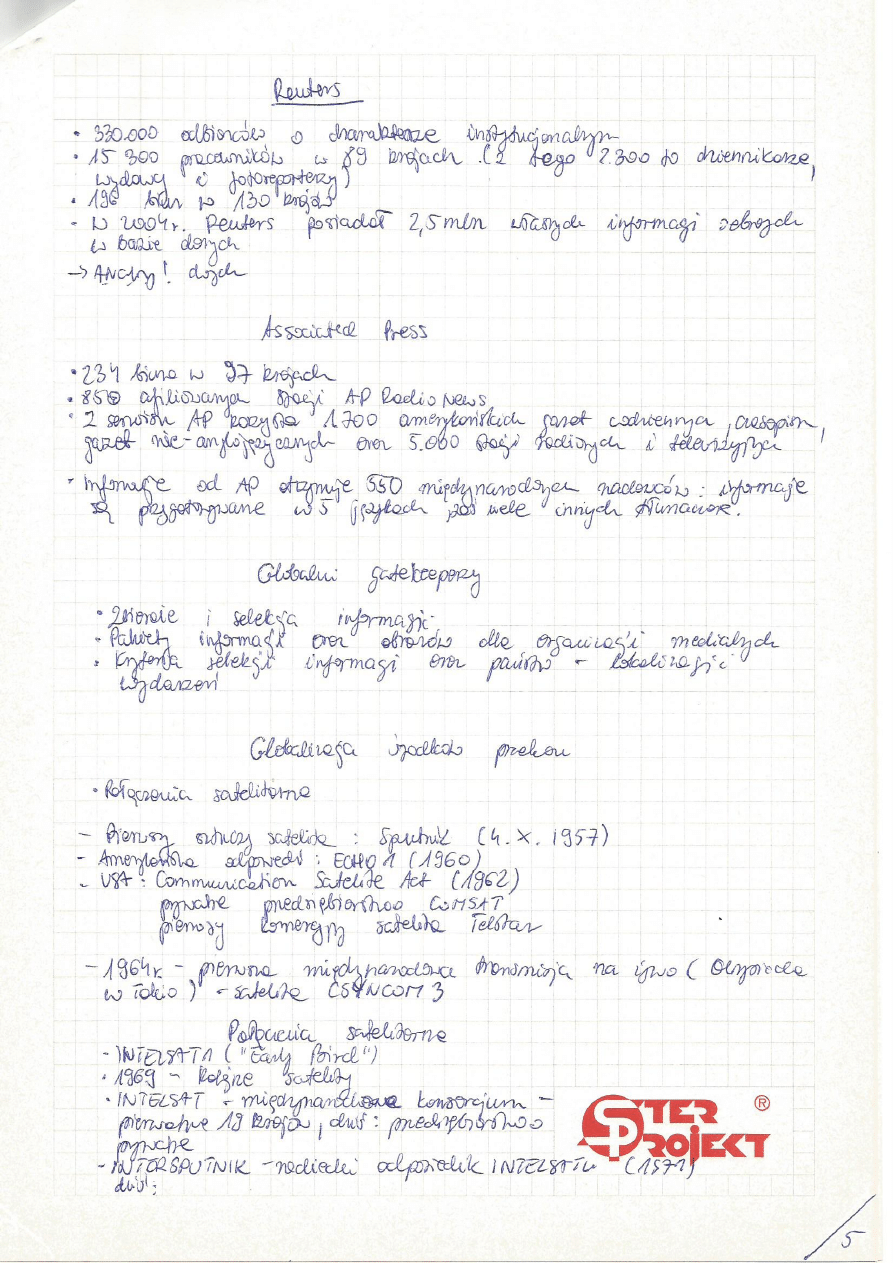 Reuters
• 330.000 odbiorców o charakterze instytucjonalnym
• 15 300 pracowników w 89 krajach (z tego 2.300 to dziennikarze,
wydawcy i fotoreporterzy)
• 196 biur w 130 krajów
- w 2004r. Reuters posiadał 2,5 mln własnych informacji zebranych
w bazie danych
→ danych
Associated Press
• 234 biura w 97 krajach
• 850 afiliowanych stacji AP Radio News
• Z serwisu AP korzysta 1700 amerykańskich gazet codziennych, czasopism,
gazet nie-anglojęzycznych oraz 5.000 stacji radiowych i telewizyjnych
• Informacje od AP otrzymuje 550 międzynarodowych nadawców: informacje
są przygotowywane w 5 językach, zaś wiele innych tłumaczone.
Globalni gatekeeperzy
• Zbieranie i selekcja informacji
- Pakiety informacji oraz obrazów dla organizacji medialnych
• Kryteria selekcji informacji oraz państw - lokalizacji
wydarzeń
Globalizacja środków przekazu
• Połączenia satelitarne
- Pierwszy sztuczny satelita: Sputnik (4.X.1957)
- Amerykańska odpowiedź: ECHO 1 (1960)
- USA: Communication Satelite Act (1962)
prywatne przedsiębiorstwo COMSAT
pierwszy komercyjny satelita Telstar
- 1964r. - pierwsza międzynarodowa transmisja na żywo (Olimpiada
w Tokio) - satelita CSYNCOM 3
Połączenia satelitarne
- INTELSAT 1 ("Early Bird")
• 1969 - kolejne satelity
• INTELSAT - międzynarodowe konsorcjum -
pierwotnie 19 krajów, dziś: przedsiębiorstwo
prywatne
- INTERSPUTNIK - radziecki odpowiednik INTELSATu (1971)
dziś:
STER PROJEKT ®
5